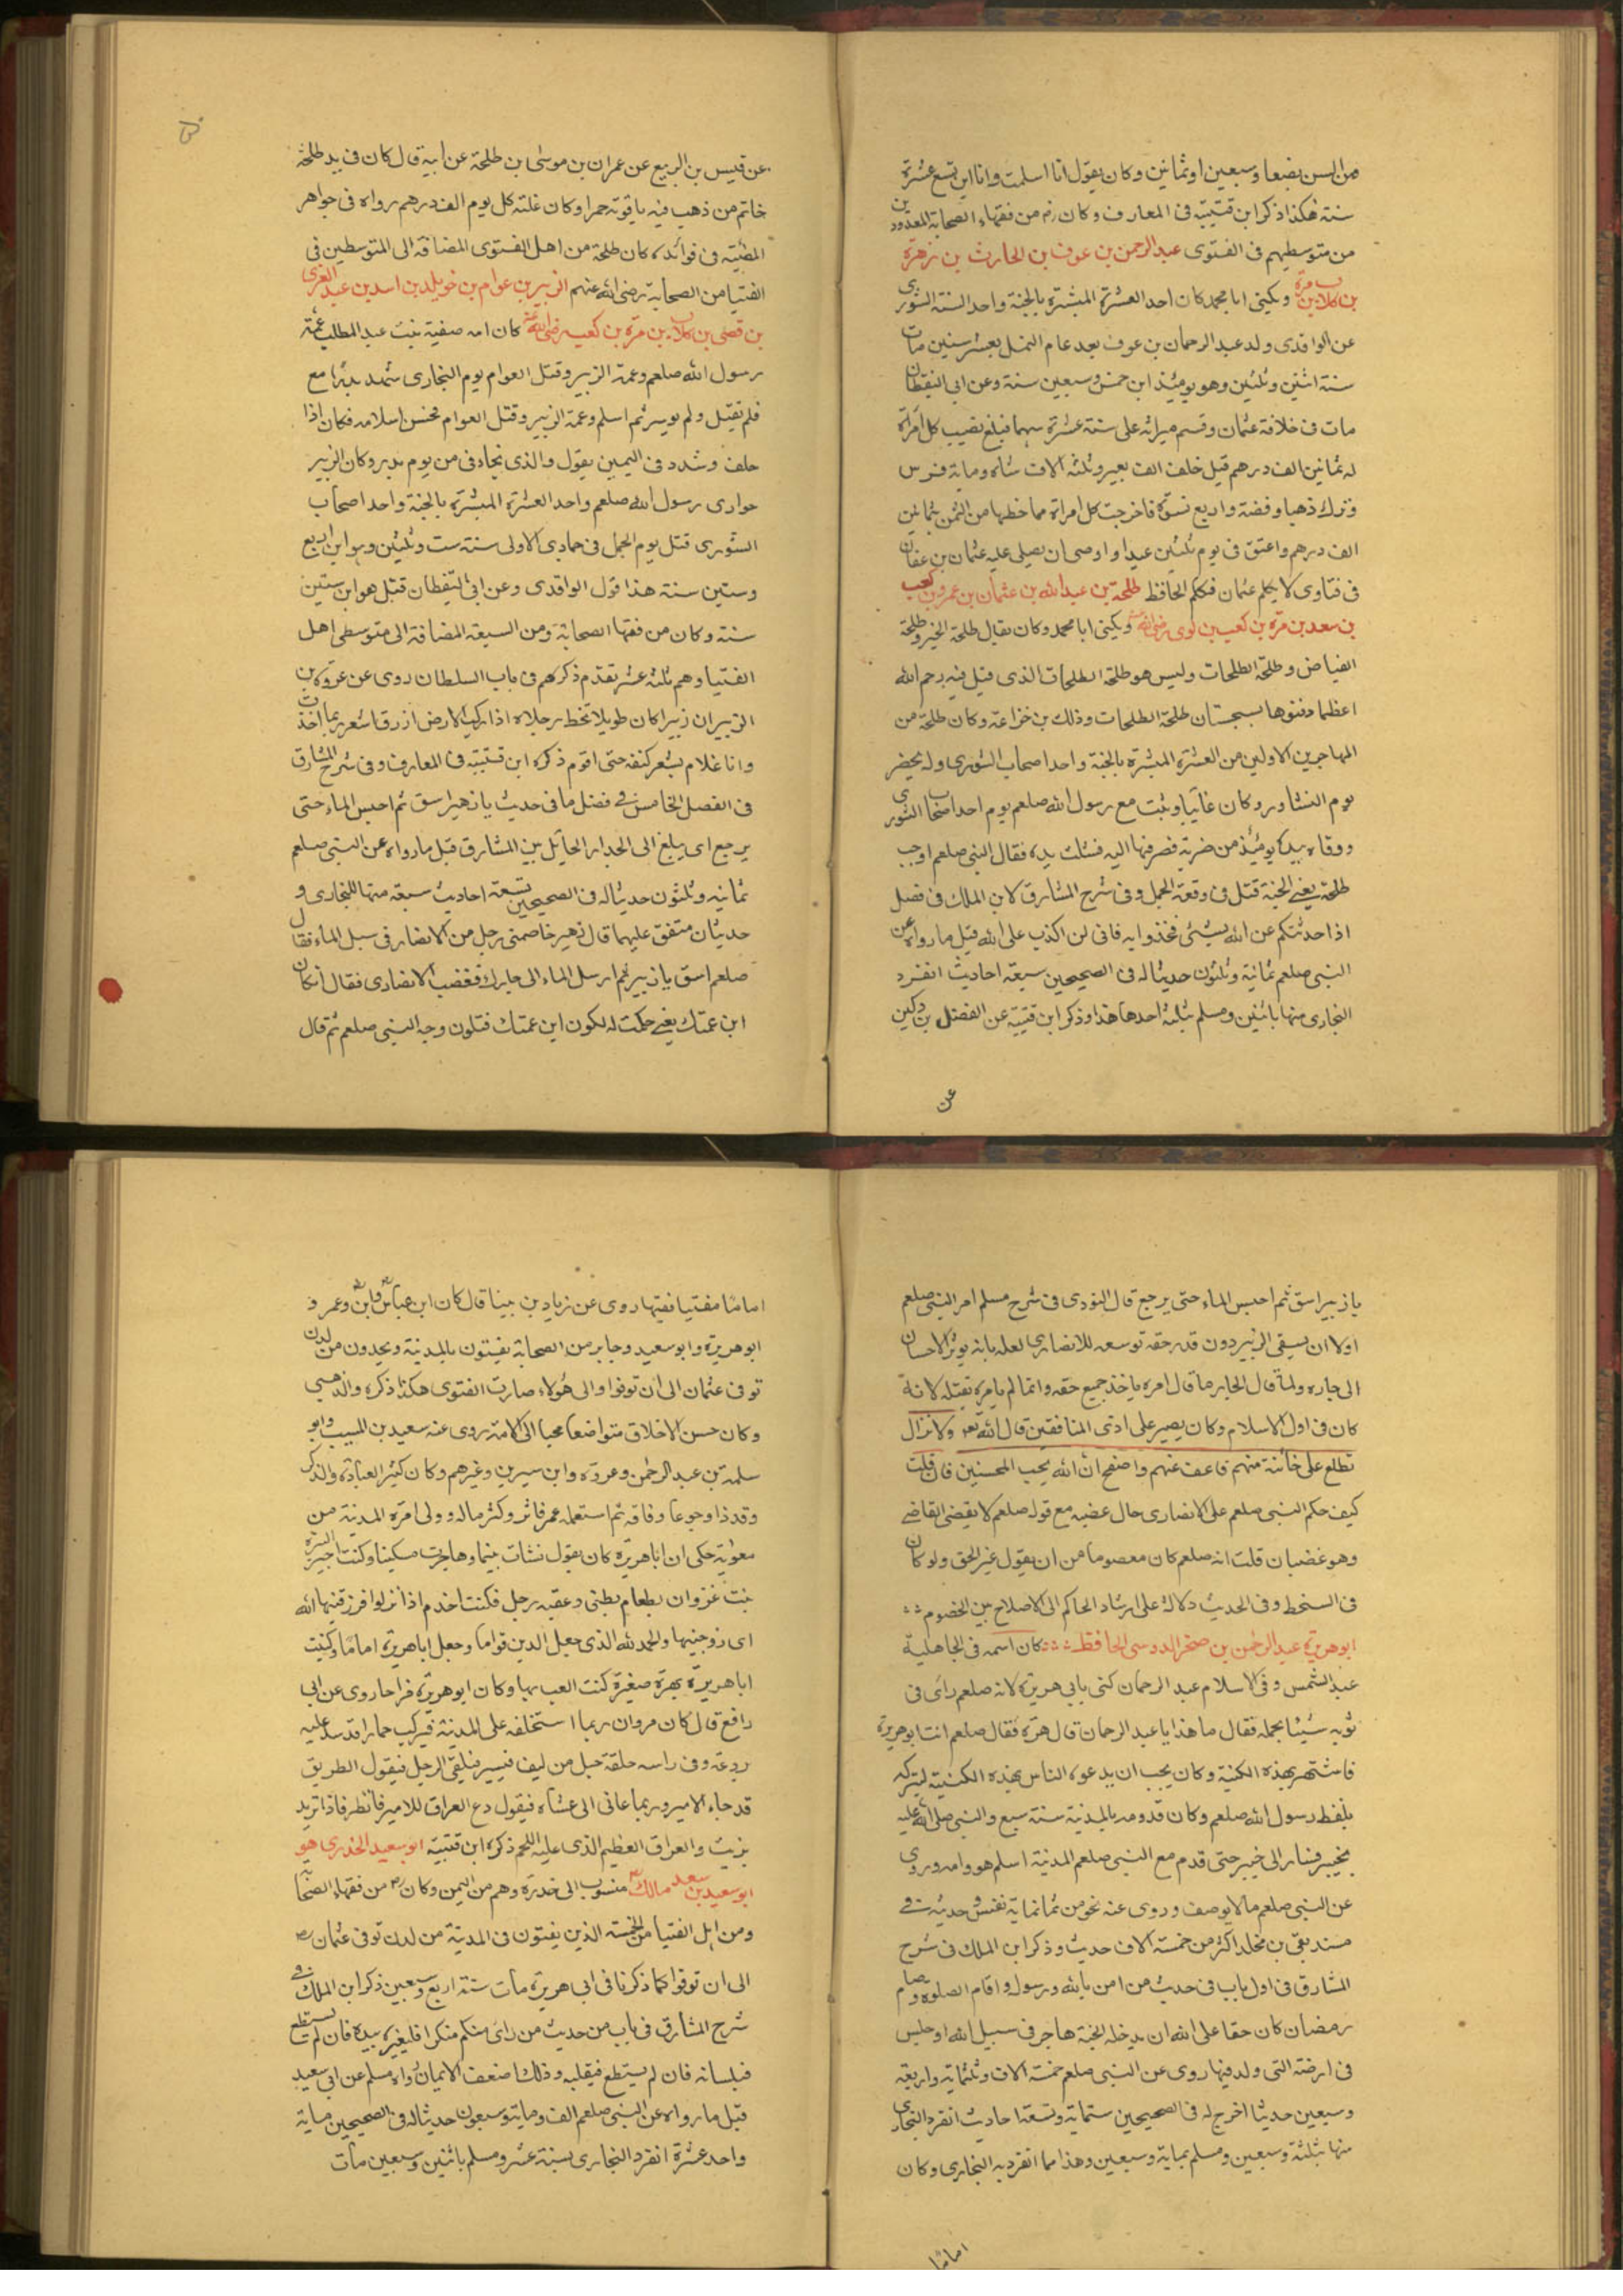 من السن بضعا وسبعين او ثمانين وكان يقول انا اسلمت وانا ابن تسع عشرة
سنة هكذا ذكر ابن قتيبة فى المعارف وكان رض من فقهاء الصحابة المعدودين
من متوسطيهم فى الفتوى عبد الرحمن بن عوف بن الحارث بن زهرة
بن كلاب بن مرة ويكنى ابا محمد كان احد العشرة المبشرة بالجنة واحد الستة الشورى
عن الواقدى ولد عبد الرحمان بن عوف بعد عام الفيل بعشر سنين مات
سنة اثنين وثلثين وهو يومئذ ابن خمس وسبعين سنة وعن ابى اليقظان
مات فى خلافة عثمان وقسم ميراثه على ستة عشرة سهما فبلغ نصيب كل امرأة
له ثمانين الف درهم قيل خلف الف بعير وثلثه آلاف شاه ومايه فرس
وترك ذهبا وفضة واربع نسوة فاخرجت كل امراة مما حظها من الثمن ثمانين
الف درهم واعتق فى يوم ثلثين عبدا واوصى ان يصلى عليه عثمان بن عفان
فى فتاوى لا يكلم عثمان فكلم الحافظ طلحة بن عبد الله بن عثمان بن عمرو بن كعب
بن سعد بن مرة بن كعب بن لوى رضى الله عنه ويكنى ابا محمد وكان يقال طلحة الخير وطلحة
الفياض وطلحة الطلحات وليس هو طلحة الطلحات الذى قيل فيه رحم الله
اعظما دفنوها بسجستان طلحة الطلحات وذلك بن خزاعة وكان طلحة من
المهاجرين الاولين من العشرة المبشرة بالجنة واحد اصحاب الشورى ولم يحضر
يوم التشاور وكان غايبا وثبت مع رسول الله صلعم يوم احد اصحاب الشورى
ووقاه بيده يومئذ من ضربة قصر فيها اليه فشلت يده فقال النبى صلعم اوجب
طلحة يعنى الجنة قتل فى وقعة الجمل وفى شرح المشارق لابن الملك فى فصل
اذا حدثتكم عن الله بشئ فخذوا به فانى لن اكذب على الله قيل ما رواه عن
النبى صلعم ثمانية وثلثون حديثا له فى الصحيحين سبعة احاديث انفرد
البخارى منها باثنين ومسلم بثلثة احدها هذا وذكر ابن قتيبة عن الفضل بن دكين
عن
عن قيس بن الربيع عن عمران بن موسى بن طلحة عن ابيه قال كان فى يد طلحة
خاتم من ذهب فيه ياقوته حمرا وكان غلته كل يوم الف درهم رواه فى جواهر
المضيئة فى فوائده كان طلحة من اهل الفتوى المضافة الى المتوسطين فى
الفتيا من الصحابة رضى الله عنهم الزبير بن عوام بن خويلد بن اسد بن عبد العزى
بن قصى بن كلاب بن مرة بن كعب رضى الله عنه كان امه صفية بنت عبد المطلب عمة
رسول الله صلعم وعمة الزبير وقتل العوام يوم الفجارى شهد بدرا مع
فلم يقتل ولم يوسر ثم اسلم وعمة الزبير وقتل العوام فحسن اسلامه فكان اذا
حلف وشدد فى اليمين يقول والذى نجاد فى من يوم بدر وكان الزبير
حوارى رسول الله صلعم واحد العشرة المبشرة بالجنة واحد اصحاب
الشورى قتل يوم الجمل فى جمادى الاولى سنة ست وثلثين وهو ابن اربع
وستين سنة هذا قول الواقدى وعن ابى اليقظان قتل هو ابن ستين
سنة وكان من فقها الصحابة ومن السبعة المضافة الى متوسطى اهل
الفتيا وهم ثلثه عشر تقدم ذكرهم فى باب السلطان روى عن عروة بن
الزبير ان زبيرا كان طويلا تخط رجلاه اذا ركب الارض ازرق اشعر ربما اخذت
وانا غلام بشعر كتفه حتى اقوم ذكره ابن قتيبة فى المعارف وفى شرح المشارق
فى الفصل الخامس فى فصل ما فى حديث يا زهير اسق ثم احبس الماء حتى
يرجع اى يبلغ الى الجدار الحايل بين المشارق قيل ما رواه عن النبى صلعم
ثمانيه وثلثون حديثا له فى الصحيحين تسعة احاديث سبعة منها للبخارى و
حديثان متفق عليهما قال زهير خاصمنى رجل من الانصار فى سبل الماء فقال
صلعم اسق يا زبير ثم ارسل الماء الى جارك فغضب الانصارى فقال أنكان
ابن عمتك يعنى حكمت له لكون ابن عمتك فتلون وجه النبى صلعم ثم قال
يا زبير اسق ثم احبس الماء حتى يرجع قال النووى فى شرح مسلم امر النبى صلعم
اولا ان يسقى الزبير دون قدر حقه توسعه للانصارى لعله بانه يوثر الاحسان
الى جاره ولما قال الجار ما قال امره ياخذ جميع حقه وانما لم يامره بقتله لانه
كان فى اول الاسلام وكان يصبر على اذى المنافقين قال الله تعه ولا تزال
تطلع على خائنة منهم فاعف عنهم واصفح ان الله يحب المحسنين فان قلت
كيف حكم النبى صلعم على الانصارى حال غضبه مع قوله صلعم لا يقضى القاضى
وهو غضبان قلت انه صلعم كان معصوما من ان يقول غير الحق ولو كان
فى السخط وفى الحديث دلالة على ارشاد الحاكم الى الاصلاح بين الخصوم
ابو هريرة عبد الرحمن بن صخر الدوسى الحافظ كان اسمه فى الجاهلية
عبد الشمس وفى الاسلام عبد الرحمان كنى بابى هريرة لانه صلعم راى فى
ثوبه شيئا يحمله فقال ما هذا يا عبد الرحمان قال هرة فقال صلعم انت ابو هريرة
فاشتهر بهذه الكنية وكان يحب ان يدعوه الناس بهذه الكنية لتبركه
بلفظ رسول الله صلعم وكان قدومه بالمدينة سنة سبع والنبى صلى الله عليه
بخيبر فسار الى خيبر حتى قدم مع النبى صلعم المدينة اسلم هو وامه وروى
عن النبى صلعم ما لا يوصف وروى عنه نحو من ثمانماية نفس وحديثه فى
مسند بقى بن مخلد اكثر من خمسة آلاف حديث وذكر ابن الملك فى شرح
المشارق فى اول باب فى حديث من امن بالله ورسوله واقام الصلوة وصام
رمضان كان حقا على الله ان يدخله الجنة هاجر فى سبيل الله او جلس
فى ارضه التى ولد فيها روى عن النبى صلعم خمسة آلاف وثلثماية واربعة
وسبعين حديثا اخرج له فى الصحيحين ستماية وتسعة احاديث انفرد البخارى
منها بثلثة وسبعين ومسلم بماية وسبعين وهذا مما انفرد به البخارى وكان
اماما
اماما مفتيا فقيها روى عن زياد بن مينا قال كان ابن عباس وابن عمر و
ابو هريرة وابو سعيد وجابر من الصحابة يفتون بالمدينة ويحدون من لدن
توفى عثمان الى ان توفوا والى هؤلاء صارت الفتوى هكذا ذكره والذهبى
وكان حسن الاخلاق متواضعا محبا الى الامة روى عنه سعيد بن المسيب وابو
سلمة بن عبد الرحمن وعروة وابن سيرين وغيرهم وكان كثير العبادة والذكر
وقد ذا وجوعا وفاقه ثم استعمله عمر فاثر وكثر ماله وولى امرة المدينة من
معوية حكى ان ابا هريرة كان يقول نشات يتيما وهاجرت مسكينا وكنت اجير البسرة
بنت غزوان بطعام بطنى وعقبه رجل فكنت اخدم اذا نزلوا فرزقنيها الله
اى زوجنيها والحمد لله الذى جعل الدين قواما وجعل ابا هريرة اماما وكنيت
ابا هريرة بهرة صغيرة كنت العب بها وكان ابو هريرة مزاحا روى عن ابى
رافع قال كان مروان ربما استخلفه على المدينة فيركب حمارا قد شد عليه
بردعة وفى راسه حلقة حبل من ليف فيسير فيلقى الرجل فيقول الطريق
قد جاء الامير وربما عانى الى عشاه فيقول دع العراق للامير فانظر فاذا تريد
بزيت والعراق العظيم الذى عليه اللحم ذكره ابن قتيبة ابو سعيد الخدرى هو
ابو سعيد بن سعد مالك منسوب الى خدرة وهم من اليمن وكان رض من فقهاء الصحابة
ومن اهل الفتيا من الخمسة الذين يفتون فى المدينة من لدن توفى عثمان رض
الى ان توفوا كما ذكرنا فى ابى هريرة مات سنة اربع وسبعين ذكر ابن الملك فى
شرح المشارق فى باب من حديث من راى منكم منكرا فليغيره بيده فان لم يستطع
فبلسانه فان لم يستطع فبقلبه وذلك اضعف الايمان رواه مسلم عن ابى سعيد
قيل ما رواه عن النبى صلعم الف وماية وسبعون حديثا له فى الصحيحين ماية
واحد عشرة انفرد البخارى بستة عشر ومسلم باثنين وسبعين مات